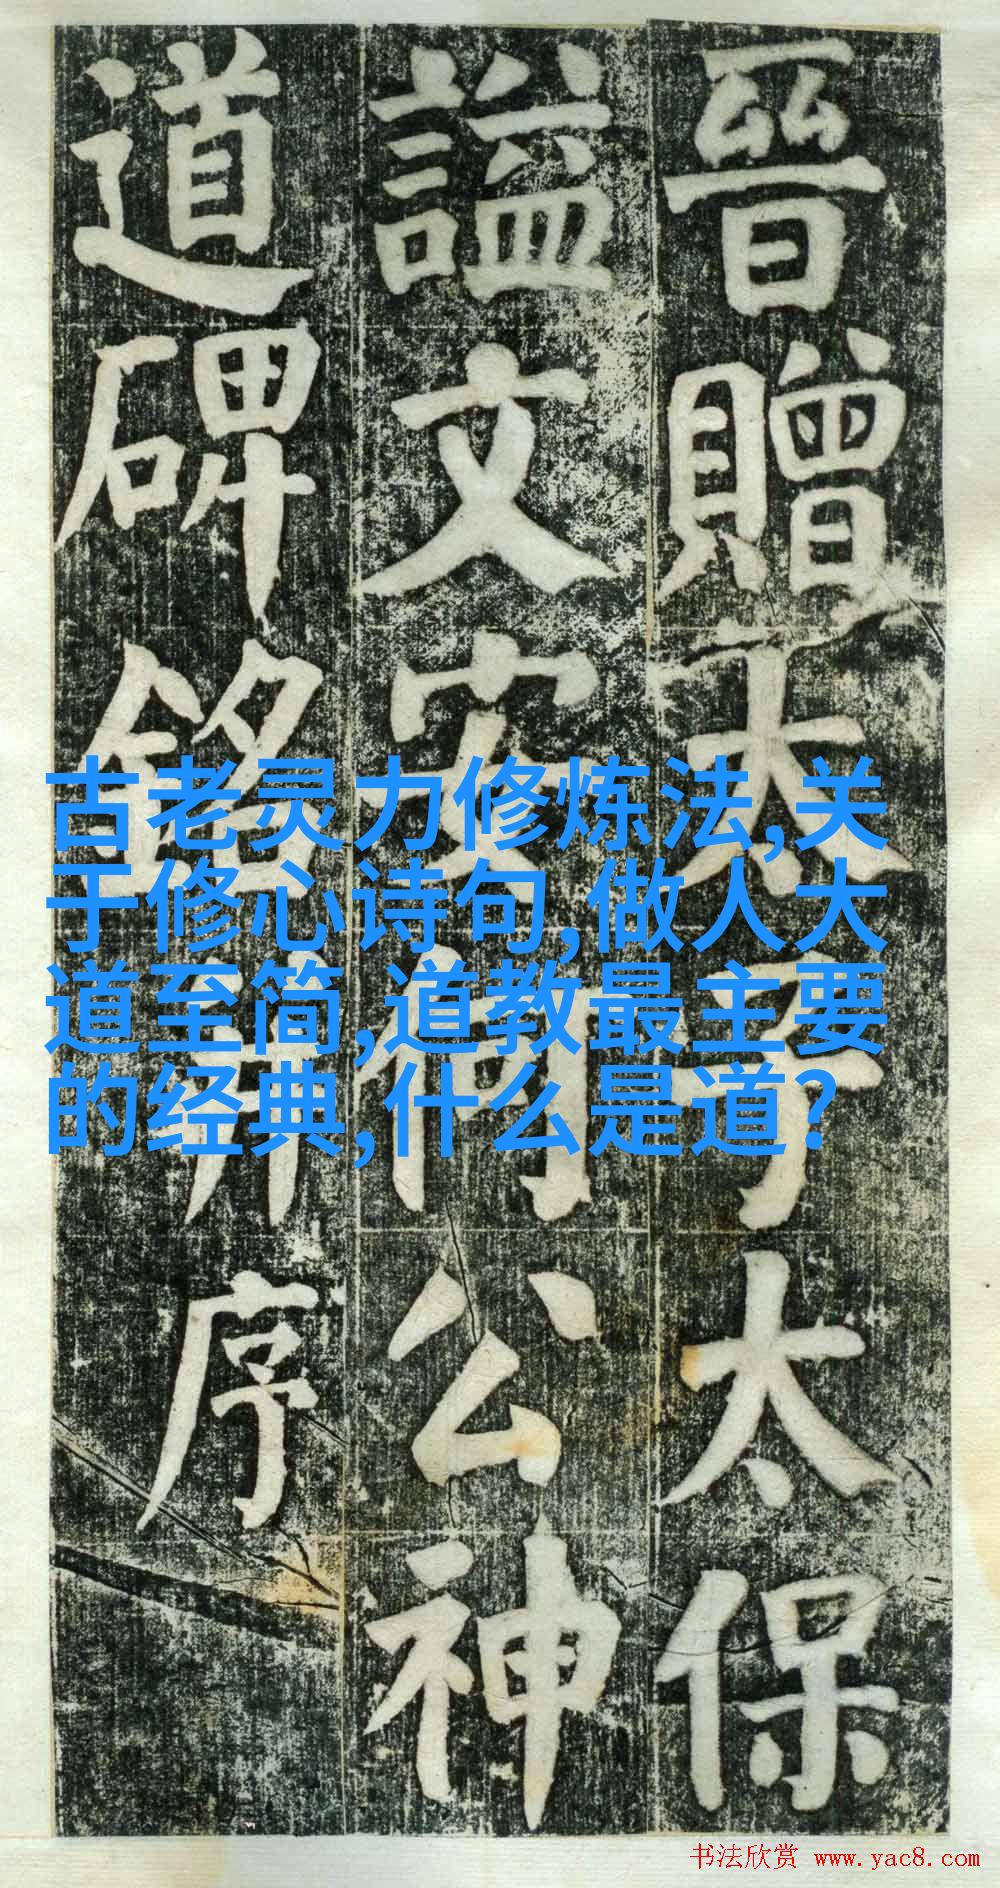 晉贈太子太保
謚文安何公神
道碑銘并序
古老灵力修炼法,关
于修心诗句,做人大
道至简,道教最主要
的经典,什么是道?
书法欣赏 www.yac8.com